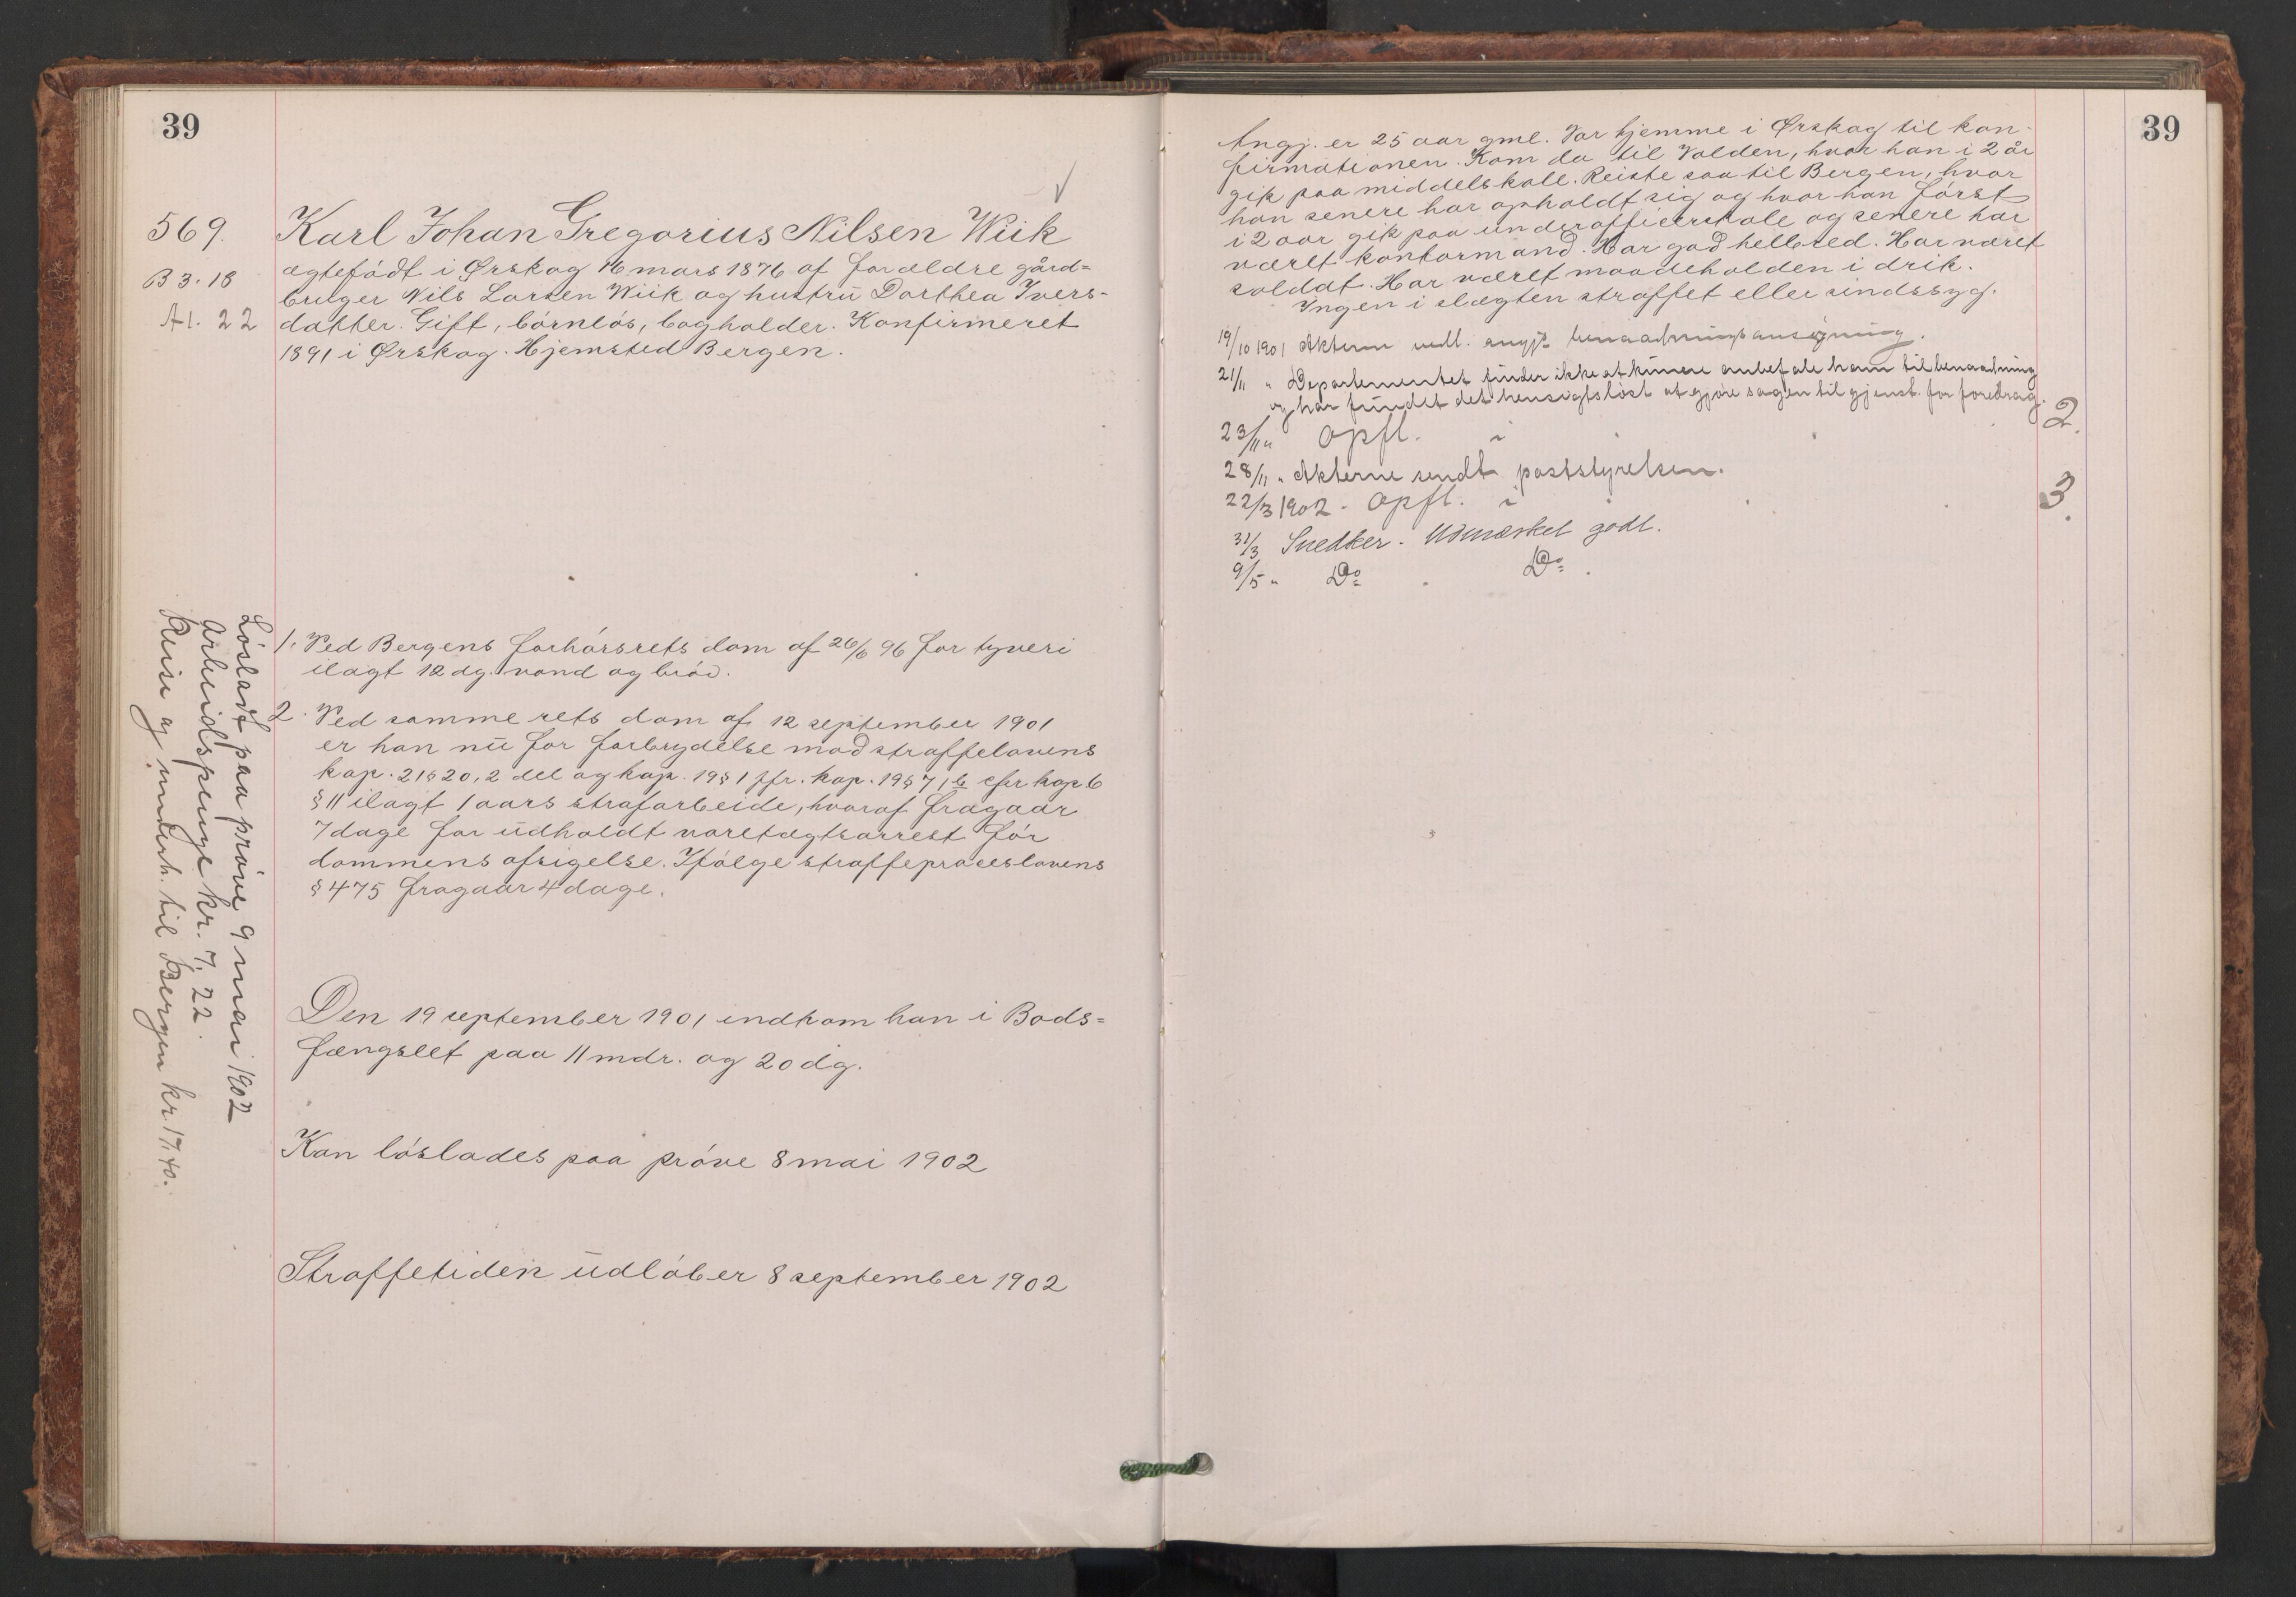 39
569.
B 3. 18
A1. 22
Karl Johan Gregorius Nilsen Wiik
ægtefødt i Ørskog 16 mars 1876 af forældre gård=
bruger Nils Larsen Wiik og hustru Dorthea Ivers-
datter. Gift, børnløs, bogholder. Konfirmeret
1891 i Ørskog. Hjemsted Bergen.
1. Ved Bergens forhørsrets dom af 26/6 96 for tyveri
ilagt 12 dg. vand og brød.
2. Ved samme rets dom af 12 september 1901
er han nu for forbrydelse mod straffelovens
kap. 21 § 20, 2 del og kap. 19 § 1 jfr. kap. 19 § 7 1 efter kap 6
§ 11 ilagt 1 aars strafarbeide, hvoraf fragaar
7 dage for udholdt varetægtsarrest før
dommens afsigelse. Ifølge straffeproceslovens
§ 475 fragaar 4 dage.
Den 19 september 1901 indkom han i Bods=
fængslet paa 11 mdr. og 20 dg.
Kan løslades paa prøve 8 mai 1902
Straffetiden udløber 8 september 1902
Løsladt paa prøve 9 mai 1902
Arbeidspenge kr. 7.22
Reise og underh. til Bergen kr. 17,40.
39
Angj. er 25 aar gml. Var hjemme i Ørskog til kon-
firmationen. Kom da til Volden, hvor han i 2 år
gik paa middelskole. Reiste saa til Bergen, hvor
han senere har opholdt sig og hvor han først
i 2 aar gik paa underofficerskole og senere har
været kontormand. Har god helbred. Har været
soldat. Har været maadeholden i drik.
Ingen i slægten straffet eller sindssyg.
19/10 1901 Akterne vedl. angjs benaadningsansøgning.
21/11 " Departementet finder ikke at kunne anbefale ham til benaadning
og har fundet det hensigtsløst at gjøre sagen til gjenst. for foredrag.
23/11 " Opfl. i 2.
28/11 " Akterne sendt poststyrelsen.
22/3 1902 - Opfl. i 3.
31/3 Snedker. Udmærket godt.
9/5 " Do Do.